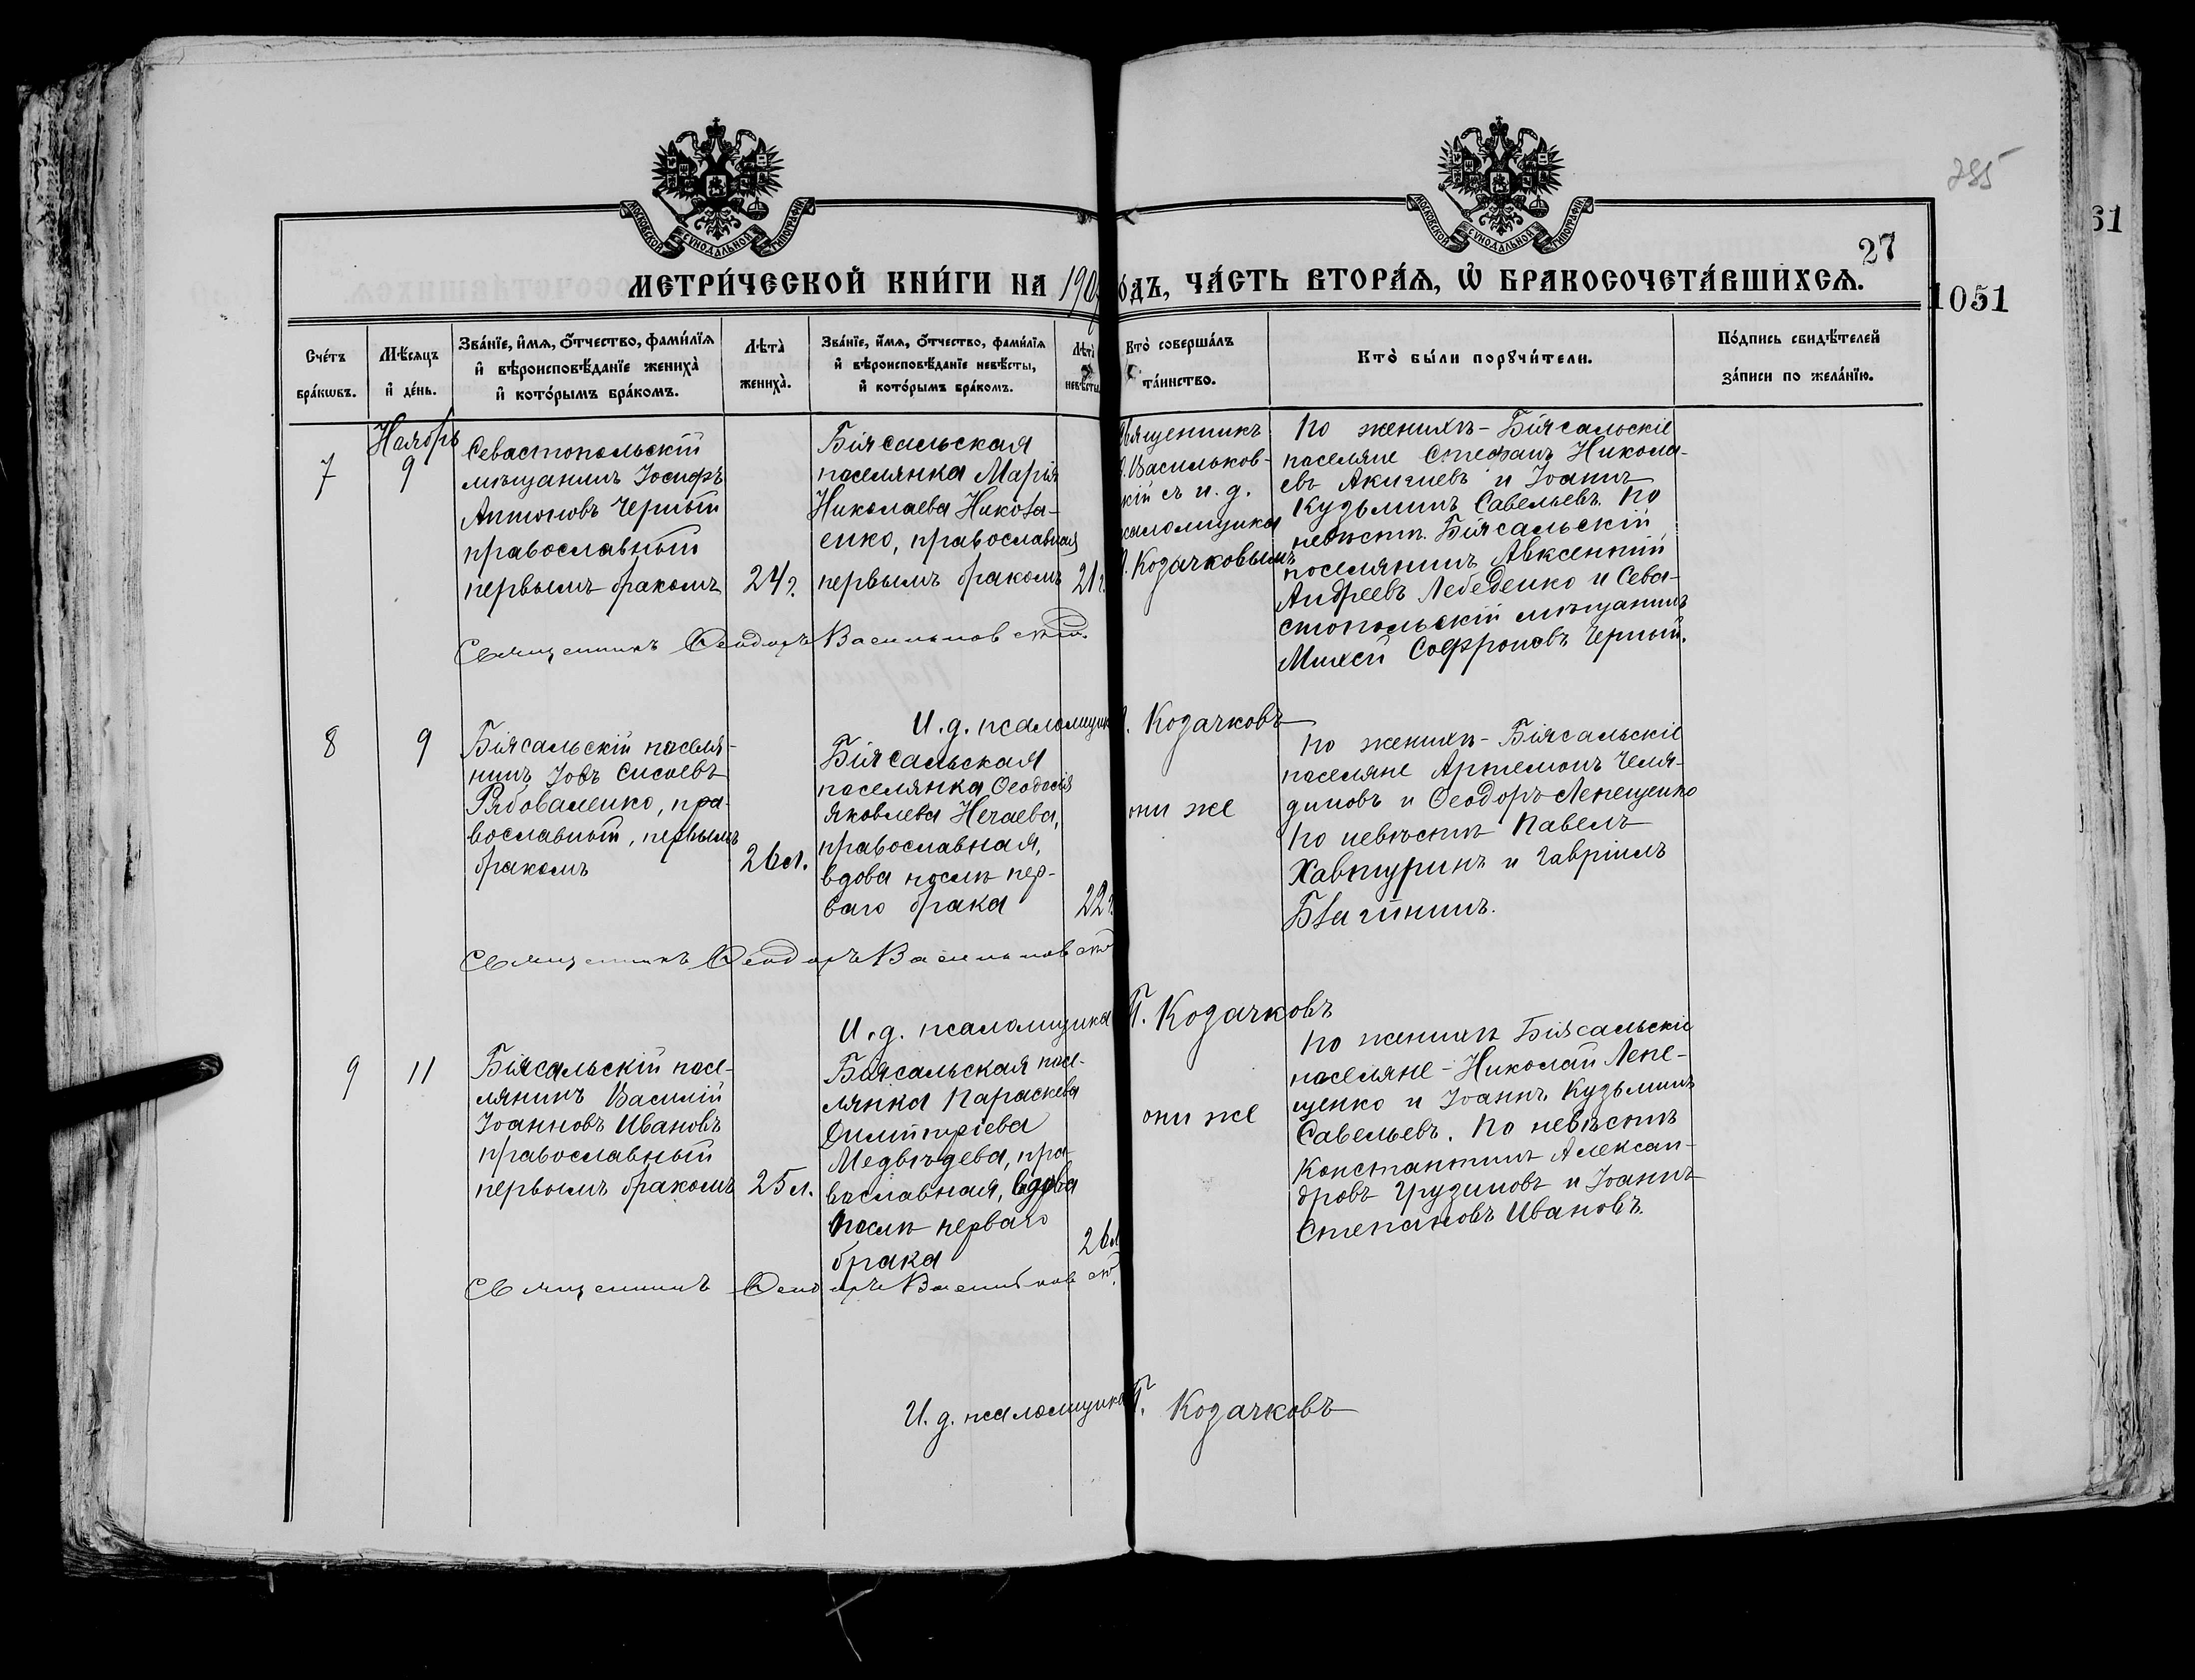 285
61
27
1051
МОСКОВСКОЙ СѴНОДАЛЬНОЙ ТИПОГРАФІИ
МОСКОВСКОЙ СѴНОДАЛЬНОЙ ТИПОГРАФІИ
МЕТРИ́ЧЕСКОЙ КНИ́ГИ НА 190 О́ДЪ, ЧА́СТЬ ВТОРА́Ѧ, Ѡ҆ БРАКОСОЧЕТА́ВШИХСѦ.
Сче́тъ бра́кѡвъ.
Мѣ́сѧцъ и҆ де́нь.
Зва́нїе, и҆́мѧ, ѻ҆́тчество, фами́лїѧ
и҆ вѣроисповѣ́данїе жениха̀
и҆ кото́рымъ бра́комъ.
Лѣта̀ жениха̀.
Зва́нїе, и҆́мѧ, ѻ҆́тчество, фами́лїѧ
и҆ вѣроисповѣ́данїе невѣ́сты,
и҆ кото́рымъ бра́комъ.
Лѣта̀ невѣ́сты
Кто̀ соверша́лъ
та́инство.
Кто̀ бы́ли порꙋчи́тели.
По́дпись свидѣ́телей
за́писи по жела́нїю.
7
Ноябрь
9
Севастопольскій
мѣщанинъ Іосифъ
Антоновъ Черный
православный
первымъ бракомъ
24 г.
Біясальская
поселянка Марія
Николаева Никола-
енко, православная
первымъ бракомъ
21 г.
священникъ
Ѳ. Васильков-
скій съ и. д.
псаломщика
П. Козачковымъ
По женихѣ - Біясальскіе
поселяне Стефанъ Никола-
евъ Акигиевъ и Іоаннъ
Кузьминъ Савельевъ. По
невѣстѣ. Біясальскій
поселянинъ Авксентій
Андреевъ Лебеденко и Сева-
стопольскій мѣщанинъ
Михей Софроновъ Черный.
Священникъ Ѳеодоръ Васильковскій.
И. д. псаломщика П. Козачковъ
8
9
Біясальскій поселя-
нинъ Іовъ Сисоевъ
Рябоваленко, пра-
вославный, первымъ
бракомъ
26 л.
Біясальская
поселянка Ѳеодосія
Яковлева Нечаева,
православная,
вдова послѣ пер-
ваго брака
22 г.
они же
По женихѣ - Біясальскіе
поселяне Артемонъ Челя-
диновъ и Ѳеодоръ Лепещенко
По невѣстѣ Павелъ
Хавтуринъ и Гавріилъ
Благининъ.
Священникъ Ѳеодоръ Васильковскій
И. д. псаломщика П. Козачковъ
9
11
Біясальскій посе-
лянинъ Василій
Іоанновъ Ивановъ
православный
первымъ бракомъ
25 л.
Біясальская посе-
лянка Параскева
Димитріева
Медвѣдева, пра-
вославная, вдова
послѣ перваго
брака
26 л
они же
По женихѣ Біясальскіе
поселяне - Николай Лепе-
щенко и Іоаннъ Кузьминъ
Савельевъ. По невѣстѣ
Константинъ Алексан-
дровъ Грузиновъ и Іоаннъ
Степановъ Ивановъ.
Священникъ Ѳеодоръ Васильковскій.
И. д. псаломщика П. Козачковъ